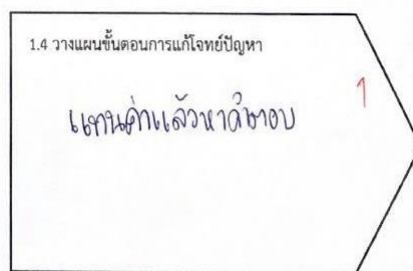 1.4 วางแผนขั้นตอนการแก้โจทย์ปัญหา
1
แทนค่าแล้วหาคำตอบ